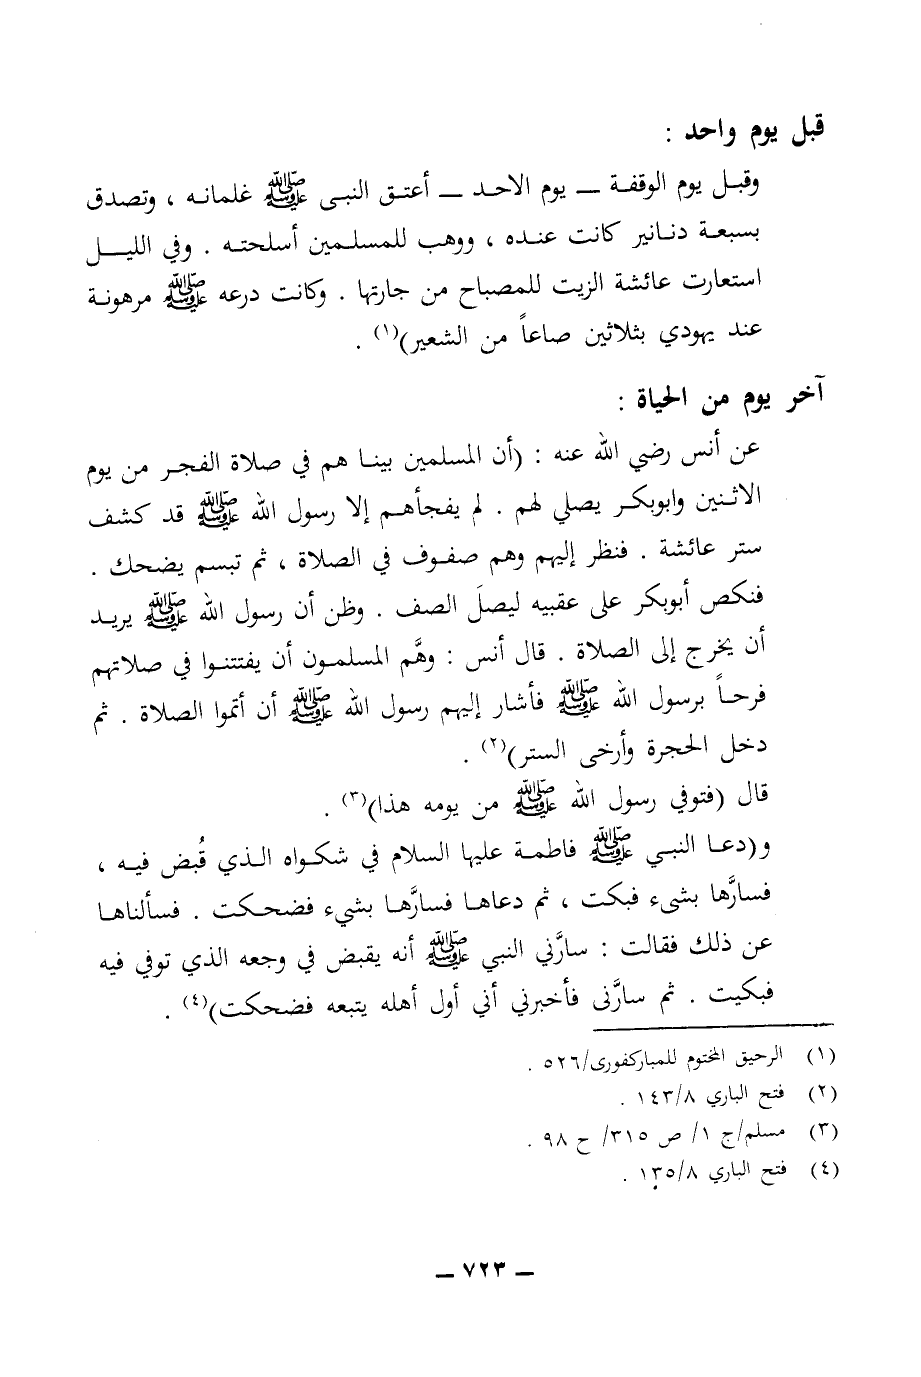 قبل يوم واحد :
وقبل يوم الوقفة ــ يوم الاحد ــ أعتق النبي ﷺ غلمانه ، وتصدق
بسبعة دنانير كانت عنده ، ووهب للمسلمين أسلحته . وفي الليل
استعارت عائشة الزيت للمصباح من جارتها . وكانت درعه ﷺ مرهونة
عند يهودي بثلاثين صاعاً من الشعير)(١) .
آخر يوم من الحياة :
عن أنس رضي الله عنه : (أن المسلمين بينا هم في صلاة الفجر من يوم
الاثنين وابوبكر يصلي لهم . لم يفجأهم إلا رسول الله ﷺ قد كشف
ستر عائشة . فنظر إليهم وهم صفوف في الصلاة ، ثم تبسم يضحك .
فنكص أبوبكر على عقبيه ليصلَ الصف . وظن أن رسول الله ﷺ يريد
أن يخرج إلى الصلاة . قال أنس : وهَّم المسلمون أن يفتتنوا في صلاتهم
فرحاً برسول الله ﷺ فأشار إليهم رسول الله ﷺ أن أتموا الصلاة . ثم
دخل الحجرة وأرخى الستر)(٢) .
قال (فتوفي رسول الله ﷺ من يومه هذا)(٣) .
و(دعا النبي ﷺ فاطمة عليها السلام في شكواه الذي قُبض فيه ،
فسارَّها بشىء فبكت ، ثم دعاها فسارَّها بشيء فضحكت . فسألناها
عن ذلك فقالت : سارَّني النبي ﷺ أنه يقبض في وجعه الذي توفي فيه
فبكيت . ثم سارَّنى فأخبرني أني أول أهله يتبعه فضحكت)(٤) .
(١) الرحيق المختوم للمباركفورى/٥٢٦ .
(٢) فتح الباري ١٤٣/٨ .
(٣) مسلم/ج ١/ ص ٣١٥/ ح ٩٨ .
(٤) فتح الباري ١٣٥/٨ .
ــ ٧٢٣ ــ